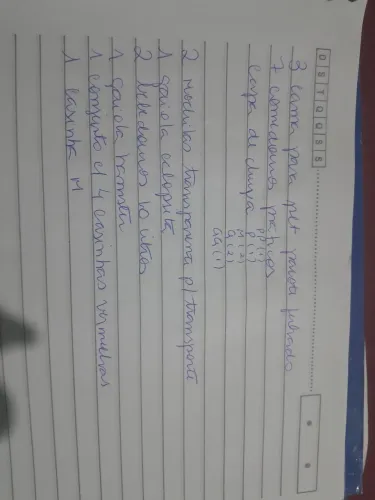 D S T Q Q S S
3 cama para pet
7 comedouros
capa de chuva PP (1)
P (1)
M (2)
G (2)
GG (1)
2 mochilas transparente p/ transporte
1 gaiola calopsita
2 bebedouros 10 litros
1 gaiola hamster
1 conjunto c/ 4 casinhas vermelhas
1 casinha M